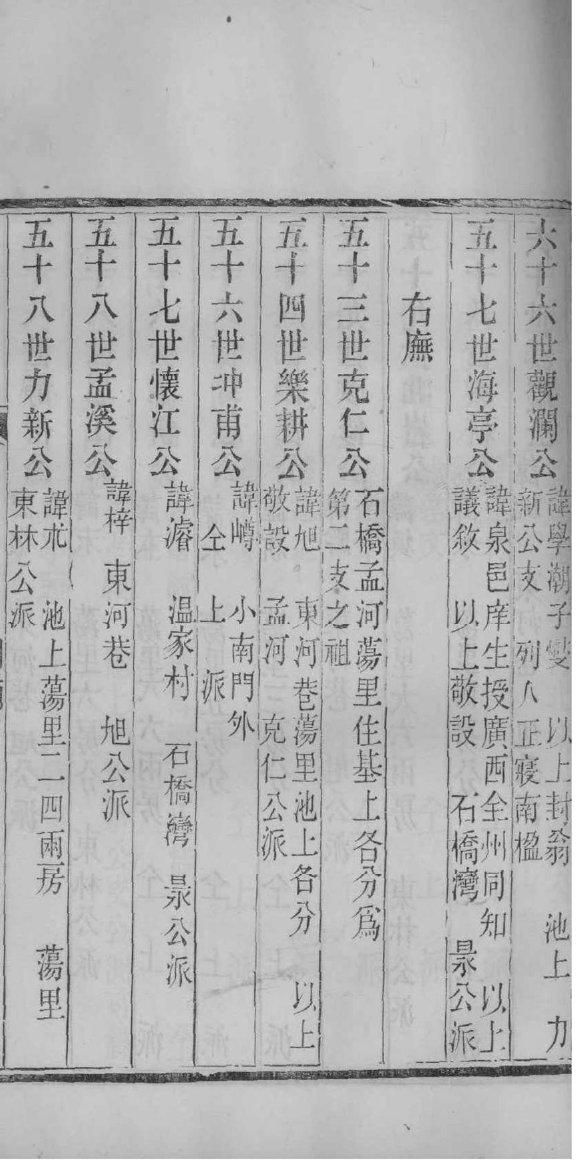 六十六世觀瀾公 諱學潮子燮 以上封翁 池上 力
新公支 列入正寢南楹
五十七世海亭公 諱泉邑庠生授廣西全州同知 以上
議敘 以上敬設 石橋灣 景公派
右廡
五十三世克仁公 石橋孟河蕩里住基上各分爲
第二支之祖
五十四世樂耕公 諱旭 東河巷蕩里池上各分 以上
敬設 孟河 克仁公派
五十六世冲甫公 諱嶟 小南門外
仝 上 派
五十七世懷江公 諱濬 温家村 石橋灣 景公派
五十八世孟溪公 諱梓 東河巷 旭公派
五十八世力新公 諱朮 池上蕩里二四兩房 蕩里
東林公派